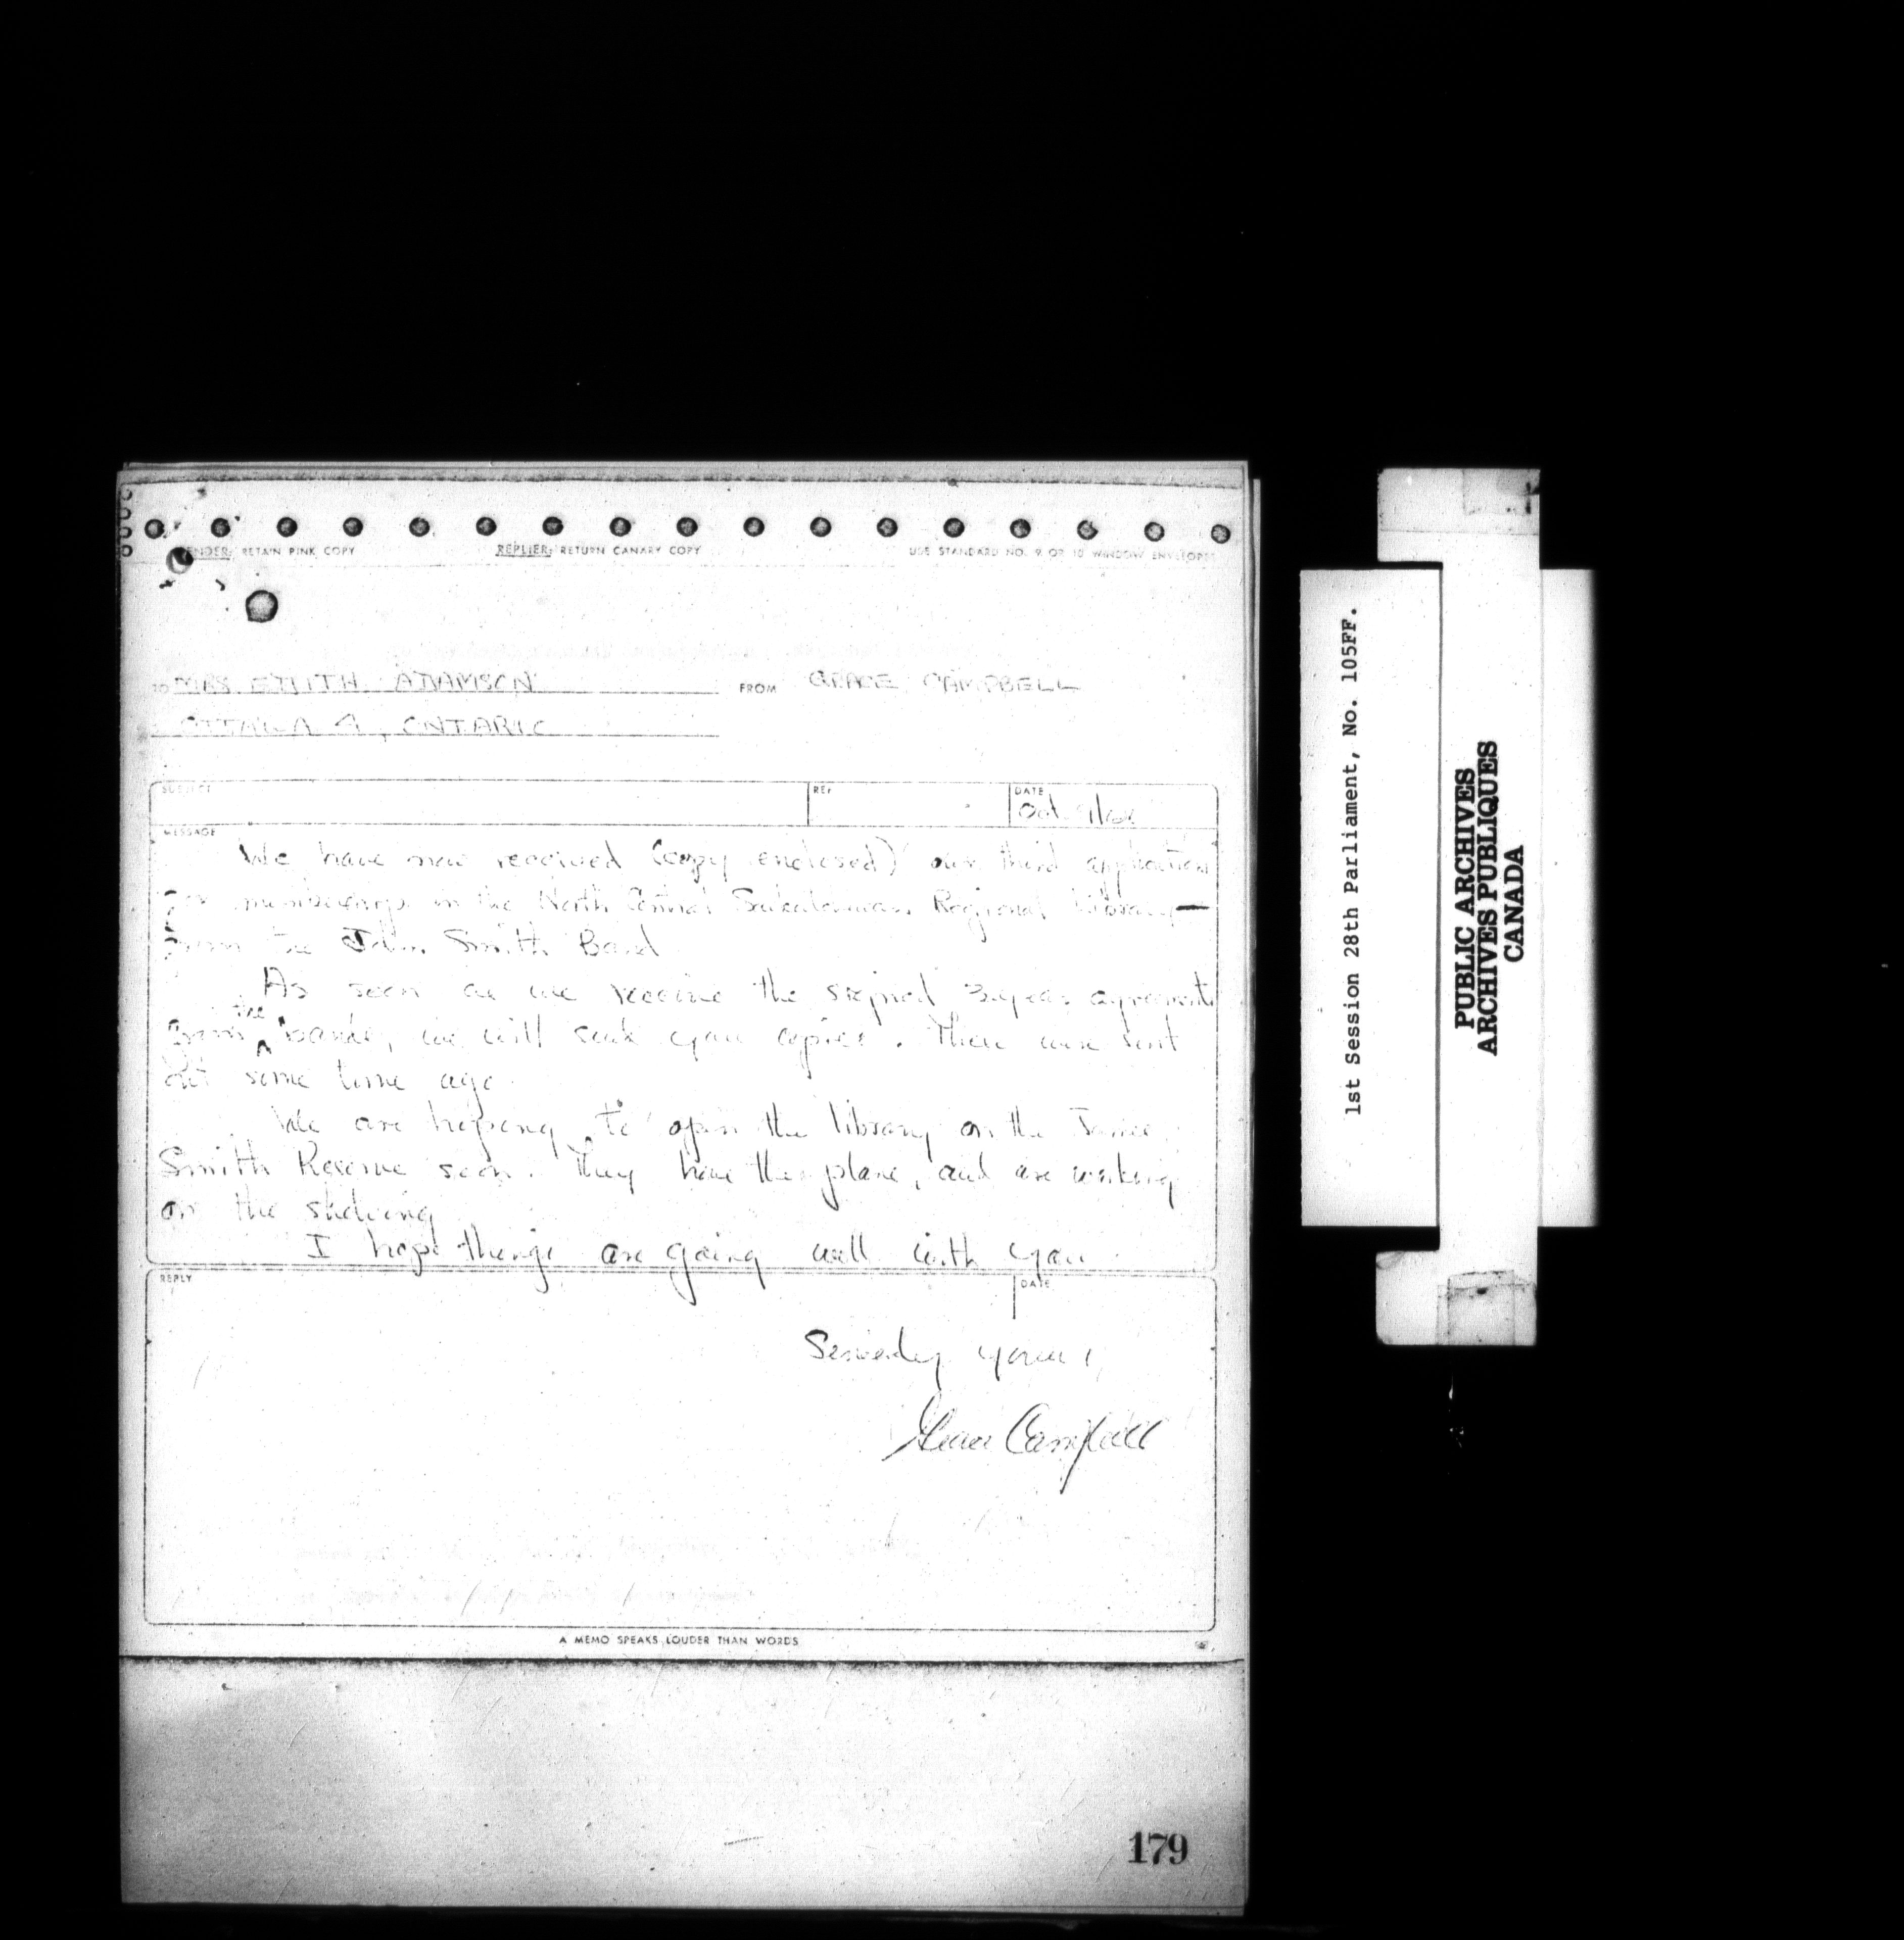 SENDER: RETAIN PINK COPY REPLIER: RETURN CANARY COPY USE STANDARD NO. 9 OR 10 WINDOW ENVELOPES
TO MRS. EDITH ADAMSON FROM GRACE CAMPBELL
OTTAWA 4, ONTARIO
SUBJECT REF DATE
Oct. 9/68
MESSAGE
We have now received (copy enclosed) our third application
for membership in the North Central Saskatchewan Regional Library —
from the John Smith Band
As soon as we receive the signed 3 year agreements
from the bands, we will send you copies. These were sent
out some time ago.
We are hoping to open the library on the James
Smith Reserve soon. They have the place, and are working
on the shelving
I hope things are going well with you.
REPLY DATE
Sincerely yours,
Grace Campbell
A MEMO SPEAKS LOUDER THAN WORDS
179
1st Session 28th Parliament, No. 105FF.
PUBLIC ARCHIVES
ARCHIVES PUBLIQUES
CANADA